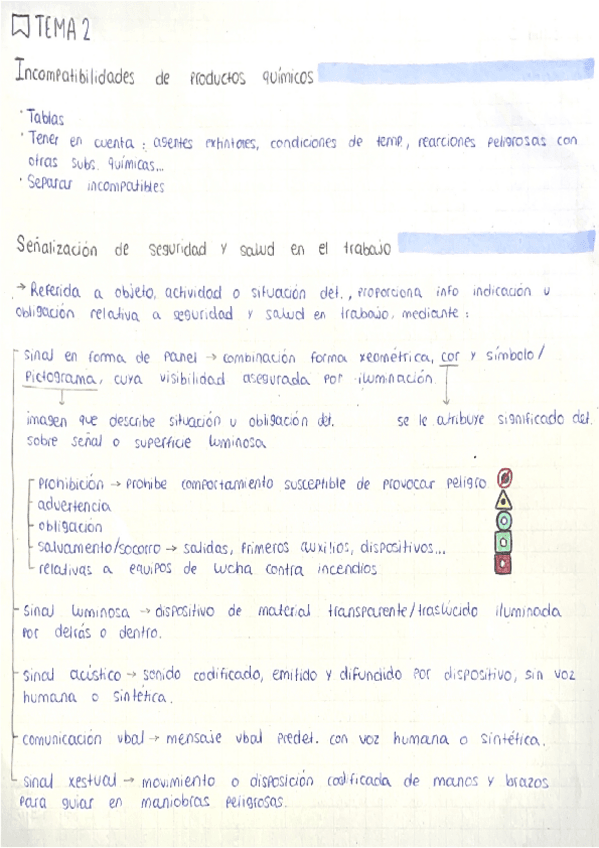 TEMA 2
Incompatibilidades de productos químicos
· Tablas
· Tener en cuenta : agentes extintores, condiciones de temp, reacciones peligrosas con
otras subs. químicas...
· Separar incompatibles
Señalización de seguridad y salud en el trabajo
→ Referida a objeto, actividad o situación det., proporciona info indicación u
obligación relativa a seguridad y salud en trabajo, mediante :
sinal en forma de panel → combinación forma xeométrica, cor y símbolo/
pictograma, cuya visibilidad asegurada por iluminación.
imagen que describe situación u obligación det. se le atribuye significado det.
sobre señal o superficie luminosa
prohibición → prohibe comportamiento susceptible de provocar peligro
advertencia
obligación
salvamento/socorro → salidas, primeros auxilios, dispositivos...
relativas a equipos de lucha contra incendios
sinal luminosa → dispositivo de material transparente/traslúcido iluminada
por detrás o dentro.
sinal acústico → sonido codificado, emitido y difundido por dispositivo, sin voz
humana o sintética.
comunicación vbal → mensaje vbal predet. con voz humana o sintética.
sinal xestual → movimiento o disposición codificada de manos y brazos
para guiar en maniobras peligrosas.